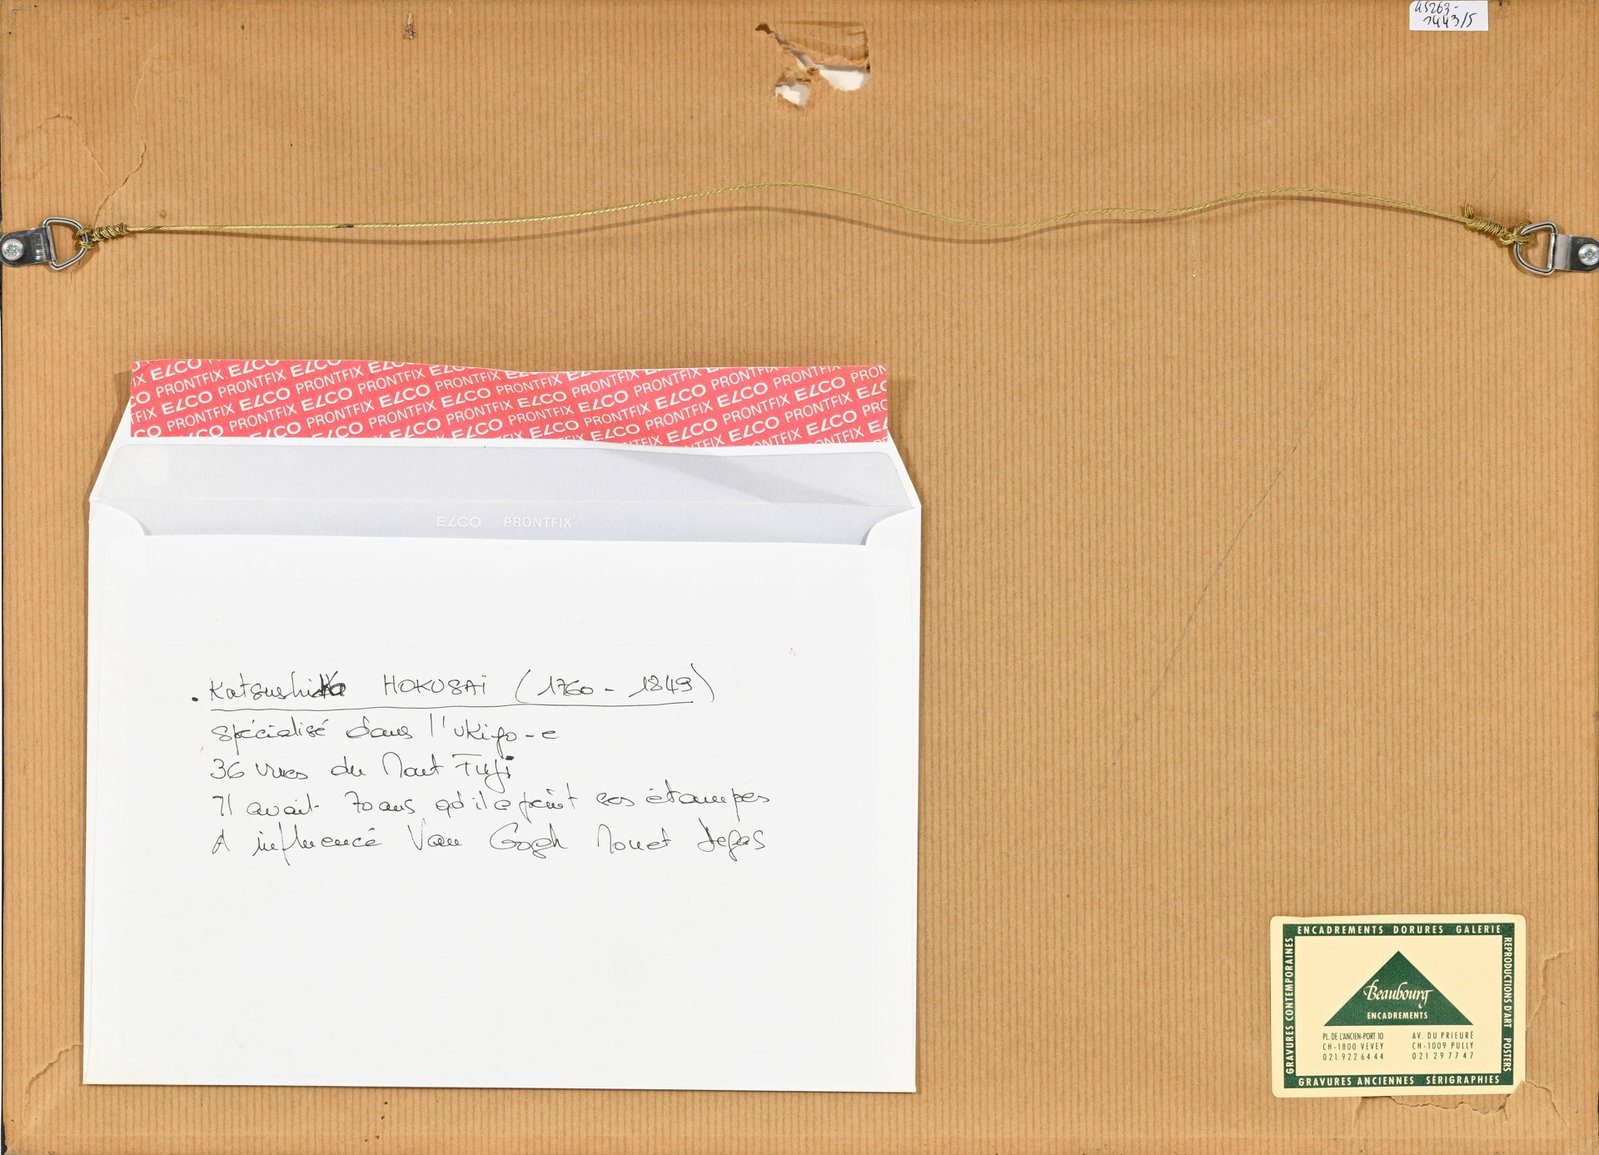 45263-
1443/5
ELCO PRONTFIX
ELCO PRONTFIX
. Katsushika HOKUSAÏ (1760 - 1849)
spécialisé dans l'ukiyo-e
36 vues du Mont Fuji
Il avait 70 ans qd il a peint ses étampes
A influencé Van Gogh Monet Degas
ENCADREMENTS DORURES GALERIE
GRAVURES CONTEMPORAINES
REPRODUCTIONS D'ART POSTERS
Beaubourg
ENCADREMENTS
PL. DE L'ANCIEN-PORT 10
CH-1800 VEVEY
021 922 64 44
AV. DU PRIEURÉ
CH-1009 PULLY
021 29 77 47
GRAVURES ANCIENNES SÉRIGRAPHIES